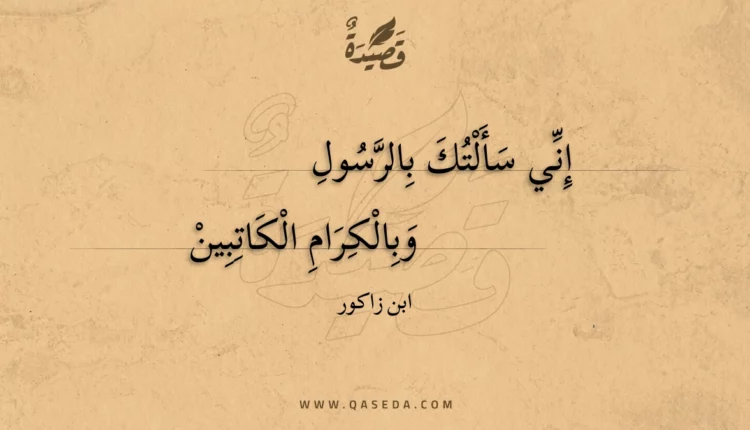 قَصِيدَةٌ
إِنِّي سَأَلْتُكَ بِالرَّسُولِ
وَبِالْكِرَامِ الْكَاتِبِينْ
ابن زاكور
WWW.QASEDA.COM